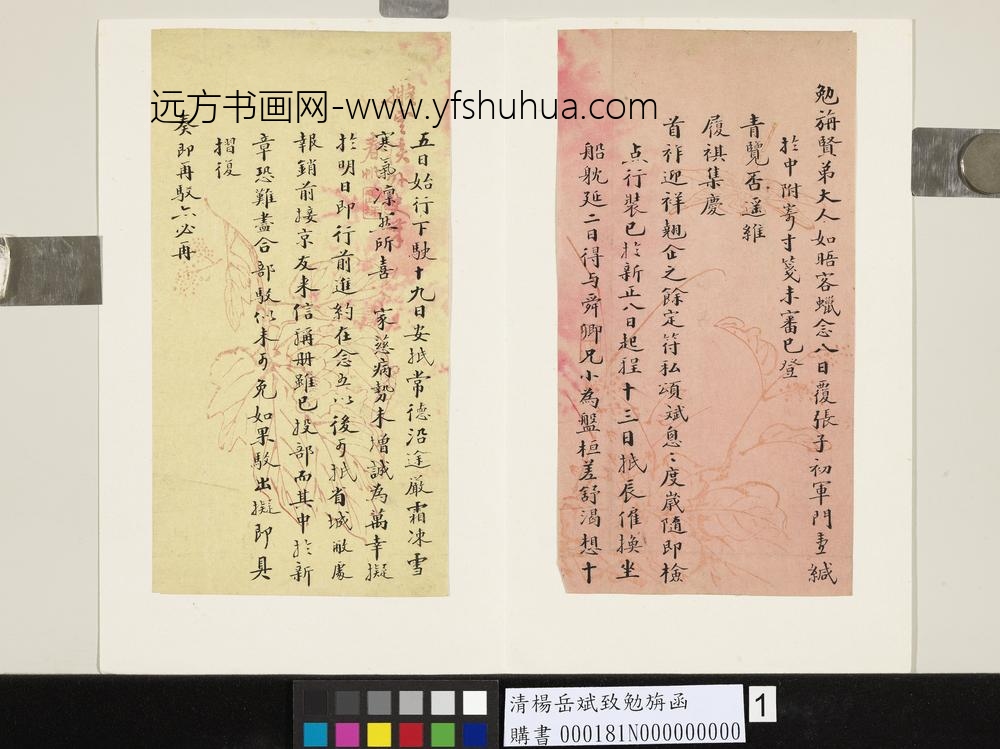 勉旃賢弟大人如晤客蠟念八日覆張子初軍門壹緘
於中附寄寸箋未審已登
青覽否遥維
履祺集慶
首祚迎祥翹企之餘定符私頌斌息〻度歲隨即檢
点行裝已於新正八日起程十三日抵辰僱換坐
船躭延二日得与舜卿兄小為盤桓差舒渴想十
五日始行下駛十九日安抵常德沿途嚴霜凍雪
寒氣凛然所喜 家慈病勢未增誠為萬幸擬
於明日即行前進約在念五以後可抵省城敝處
報銷前接京友来信稱册雖已投部而其中於新
章恐難盡合部駁似未可免如果駁出擬即具
摺復
奏即再駁亦必再
远方书画网-www.yfshuhua.com
清楊岳斌致勉旃函
購書 000181N000000000
1